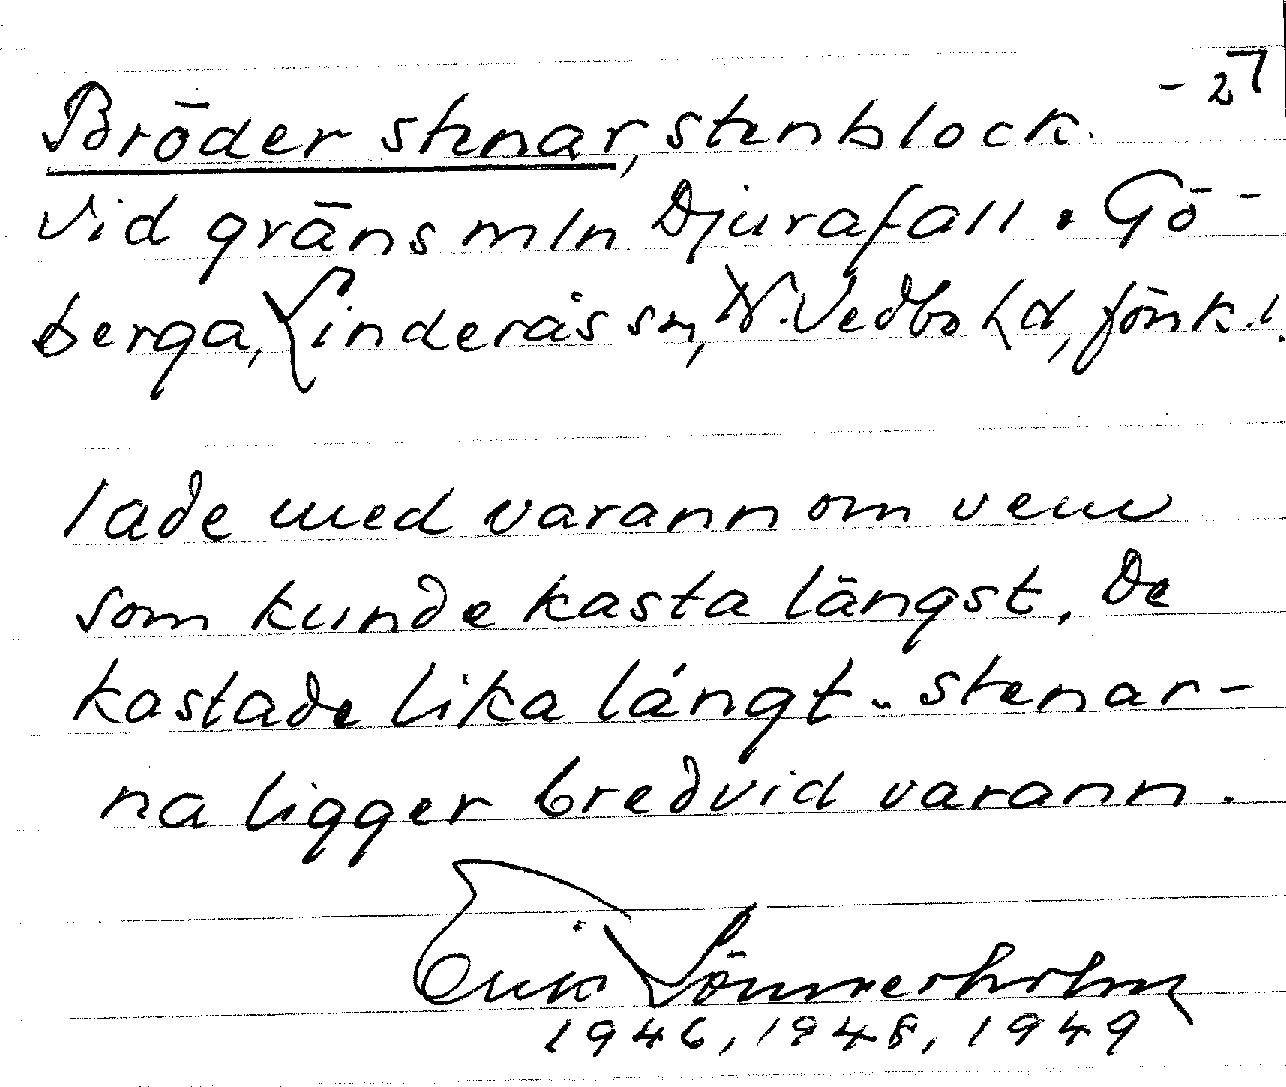 - 27
Bröder stenar, stenblock
vid gräns mln Djurafall. Gö-
berga, Linderås sn, N. Vedbo hd, Jönk.l.
lade med varann om vem
som kunde kasta längst. De
kastade lika långt - stenar-
na ligger bredvid varann.
Erik Lönnerholm
1946, 1948, 1949